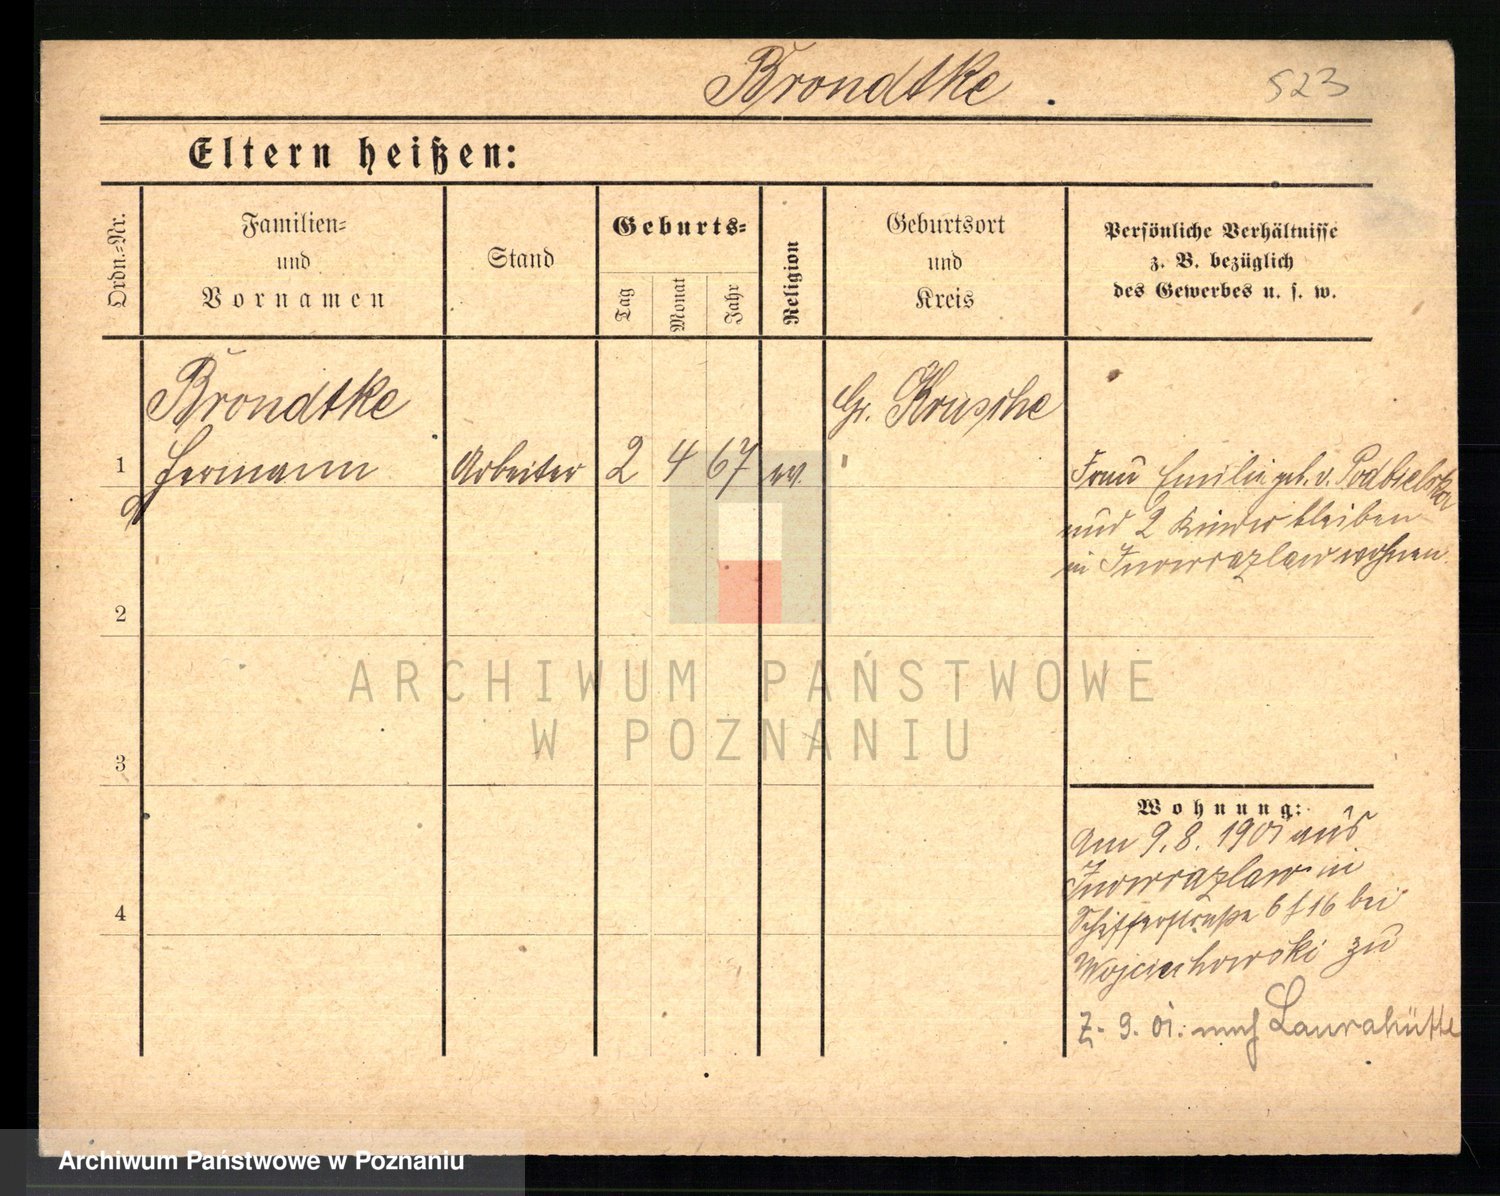 Brondtke.
523
Eltern heißen:
Ordn.-Nr.
Familien- und Vornamen
Stand
Geburts-
Tag
Monat
Jahr
Religion
Geburtsort und Kreis
Persönliche Verhältnisse
z. B. bezüglich
des Gewerbes u. s. w.
1
Brondtke
Hermann
Arbeiter
2
4
67
ev.
Gr. Krusche
Frau Emilie geb. v. Podbielska
und 2 Kinder bleiben
in Inowrazlaw wohnen.
2
3
4
Wohnung:
Am 9.8.1901 aus
Inowrazlaw in
Schifferstraße 6 f 16 bei
Wojciechowski zu
Z. 9. 01. nach Laurahütte
ARCHIWUM PAŃSTWOWE
W POZNANIU
Archiwum Państwowe w Poznaniu